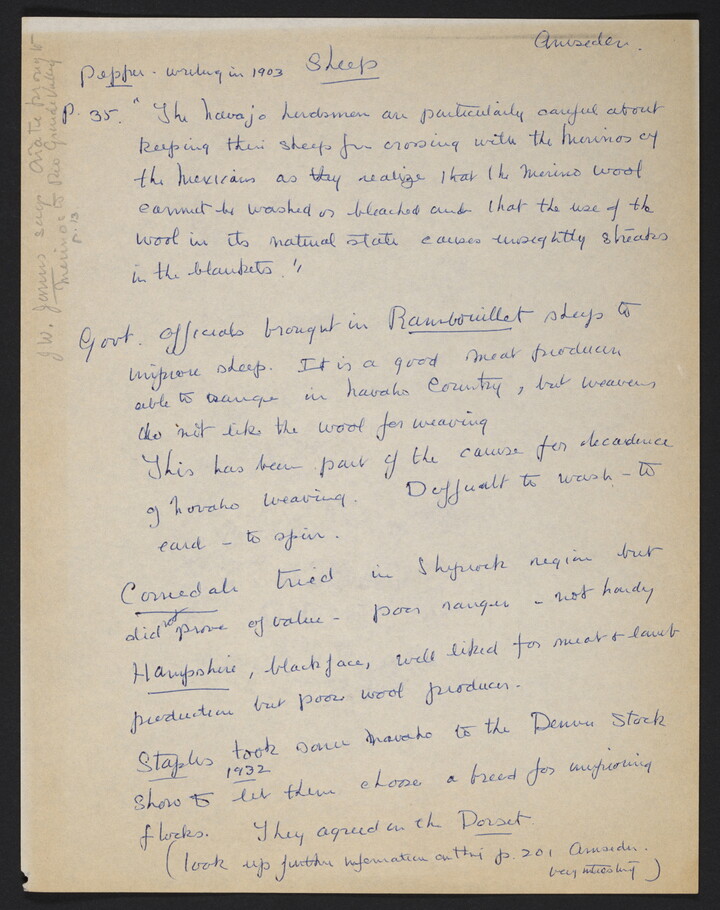 Amsden.
Pepper - writing in 1903 Sheep
p. 35. "The Navajo herdsmen are particularly careful about
keeping their sheep from crossing with the Merinos of
the Mexicans as they realize that the Merino wool
cannot be washed or bleached and that the use of the
wool in its natural state causes unsightly streaks
in the blankets."
Govt. officials brought in Rambouillet sheep to
improve sheep. It is a good meat producer
able to range in Navaho Country, but weavers
do not like the wool for weaving
This has been part of the cause for decadence
of Navaho weaving. Difficult to wash - to
card - to spin.
Corriedale tried in Shiprock region but
did not prove of value - poor ranger - not hardy
Hampshire, blackface, well liked for meat & lamb
production but poor wool producer.
Staples took some Navaho to the Denver Stock
1932
Show to let them choose a breed for improving
flocks. They agreed on the Dorset
(look up further information on this p. 201 Amsden.
very interesting)
J.W. James says Oñate brought
Merinos to Rio Grande Valley
p. 13